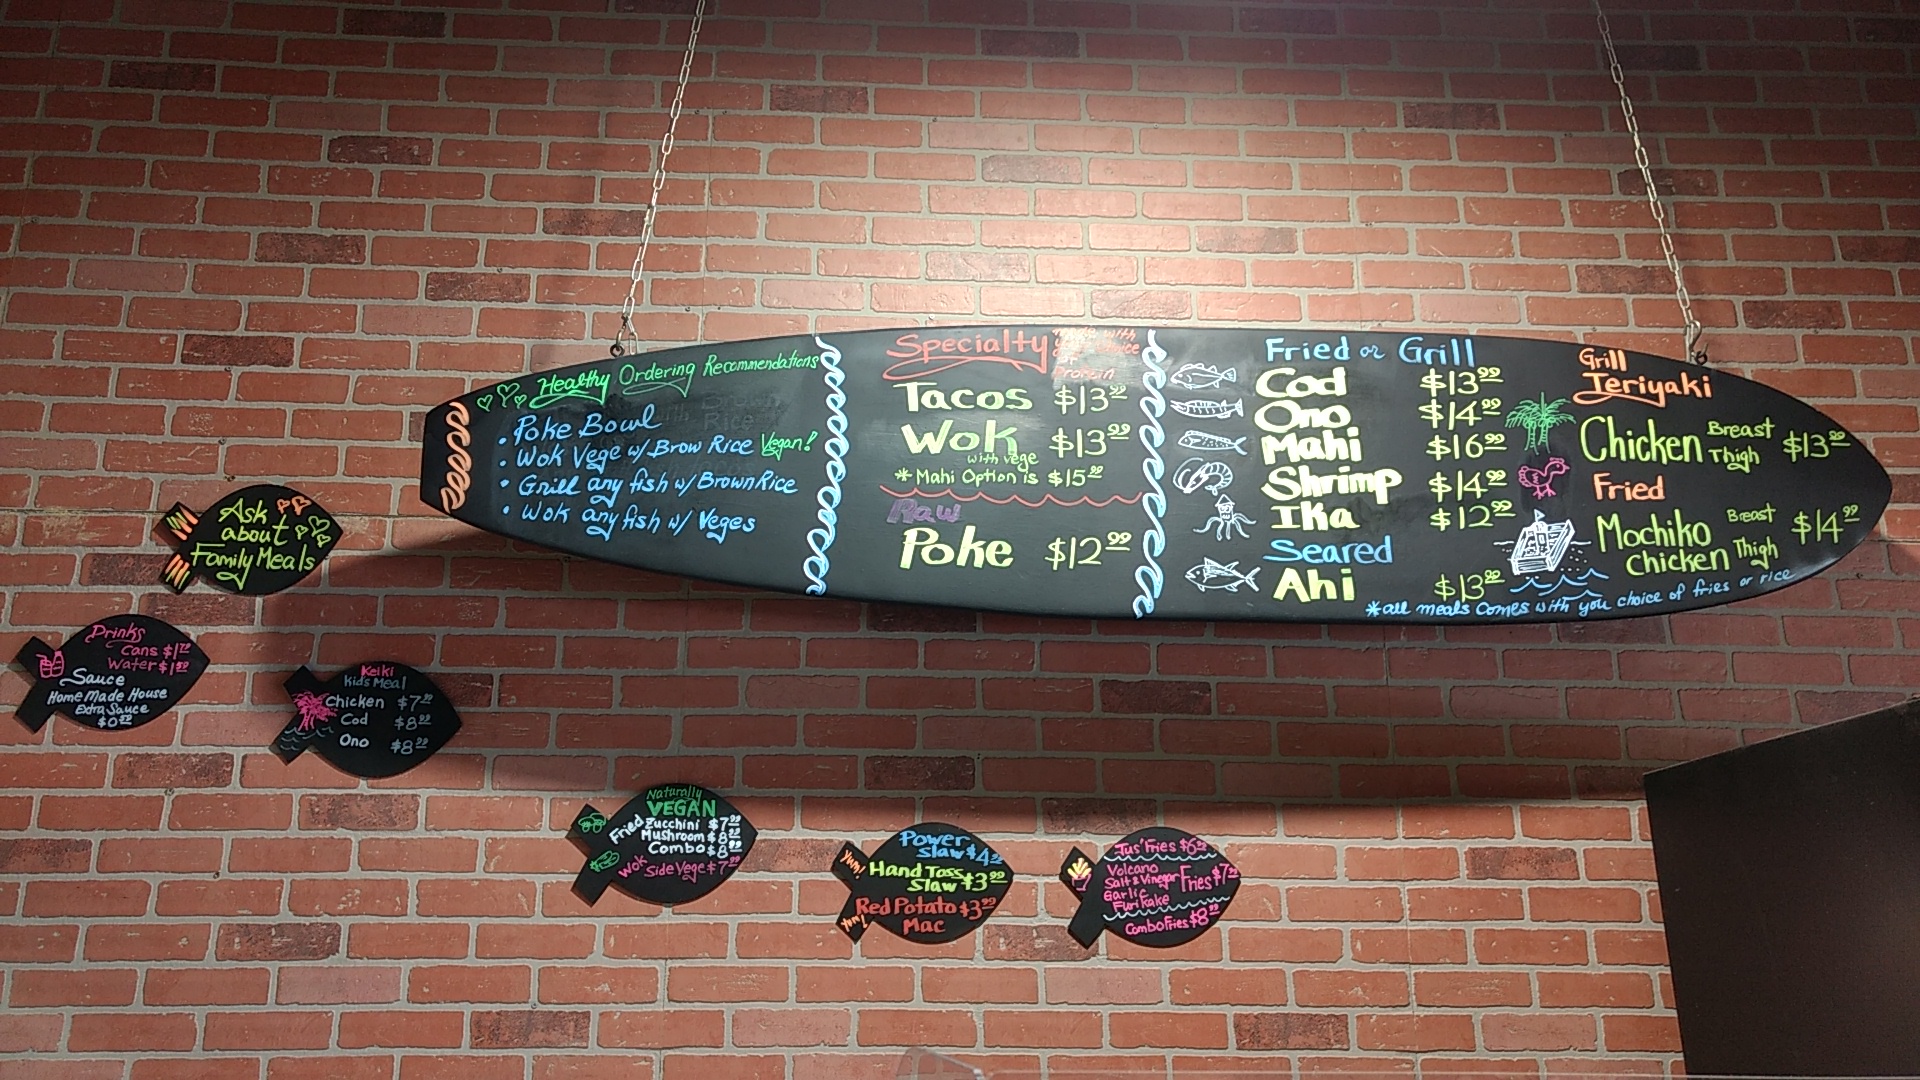 Healthy Ordering Recommendations
• Poke Bowl
• Wok Vege w/ Brow Rice Vegan!
• Grill any fish w/ Brown Rice
• Wok any fish w/ Veges
Specialty
made with
your choice
of
Protein
Tacos $13.99
Wok $13.99
with vege
* Mahi Option is $15.99
Raw
Poke $12.99
Fried or Grill
Cod $13.99
Ono $14.99
Mahi $16.99
Shrimp $14.99
Ika $12.99
Seared
Ahi $13.99
Grill
Teriyaki
Chicken Breast Thigh $13.99
Fried
Mochiko Chicken Breast Thigh $14.99
*all meals comes with you choice of fries or rice
Ask
about
Family Meals
Drinks
Cans
Water
Sauce
Home Made House
Extra Sauce
Keiki
Kid's Meal
Chicken $7.99
Cod $8.99
Ono $8.99
Naturally
VEGAN
Fried
Zucchini $7.99
Mushroom $8.99
Combo $8.99
Wok Side Vege $7.99
Yum!
Power
Slaw $4.99
Hand Toss
Slaw $3.99
Red Potato $3.99
Mac
Yum!
Jus' Fries $6.99
Volcano
Salt & Vinegar
Garlic
Furikake
Fries $7.99
Combo Fries $8.99